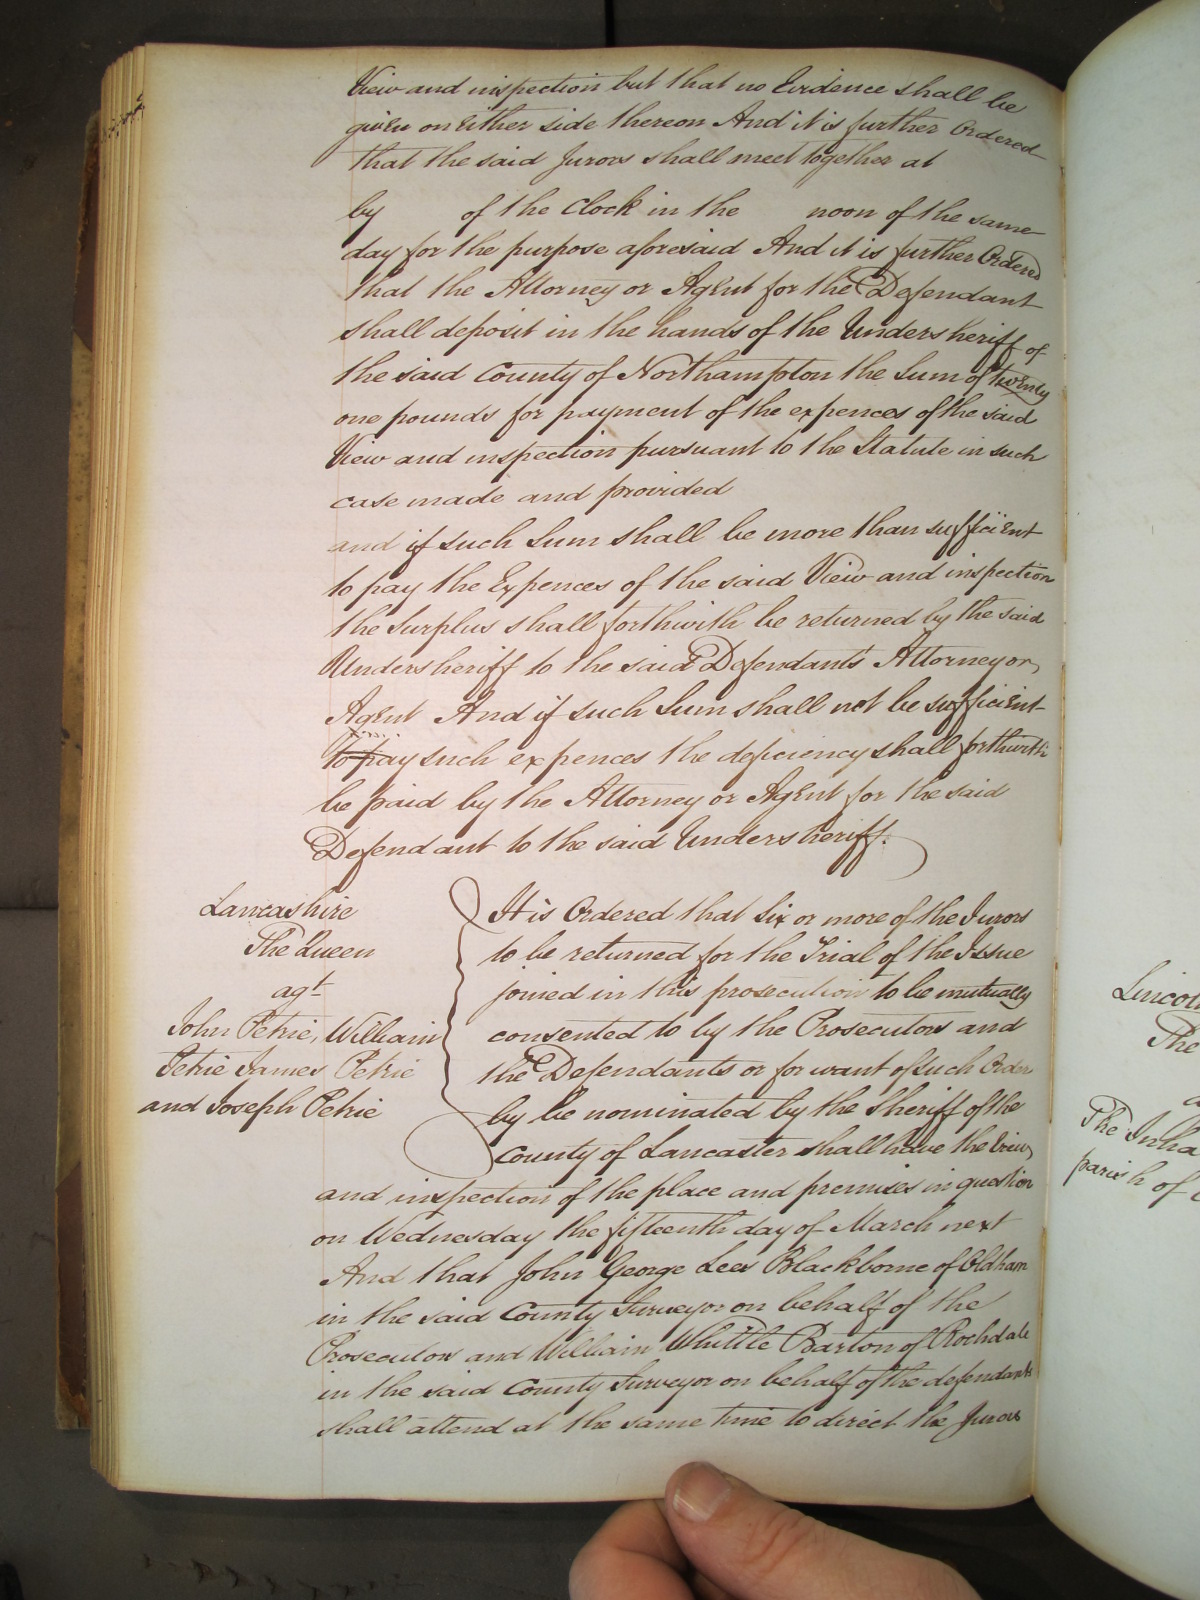 View and inspection but that no Evidence shall be
given on Either side thereon And it is further Ordered
that the said Jurors shall meet together at
by of the Clock in the noon of the same
day for the purpose aforesaid And it is further Ordered
that the Attorney or Agent for the Defendant
shall deposit in the hands of the Undersheriff of
the said County of Northampton the Sum of twenty
one pounds for payment of the expences of the said
View and inspection pursuant to the Statute in such
case made and provided
and if such Sum shall be more than sufficient
to pay the Expences of the said View and inspection
the Surplus shall forthwith be returned by the said
Undersheriff to the said Defendants Attorney or
Agent And if such Sum shall not be sufficient
to pay such expences the deficiency shall forthwith
be paid by the Attorney or Agent for the said
Defendant to the said Undersheriff.
Lancashire
The Queen
agt
John Petrie, William
Petrie James Petrie
and Joseph Petrie
It is Ordered that Six or more of the Jurors
to be returned for the Trial of the Issue
joined in this prosecution to be mutually
consented to by the Prosecutors and
the Defendants or for want of such Order
by be nominated by the Sheriff of the
County of Lancaster shall have the View
and inspection of the place and premises in question
on Wednesday the fifteenth day of March next
And that John George Lees Blackborne of Oldham
in the said County Surveyor on behalf of the
Prosecutors and William Whittle Barton of Rochdale
in the said County Surveyor on behalf of the defendants
shall attend at the same time to direct the Jurors
Lincoln
The
The Inha
parish of